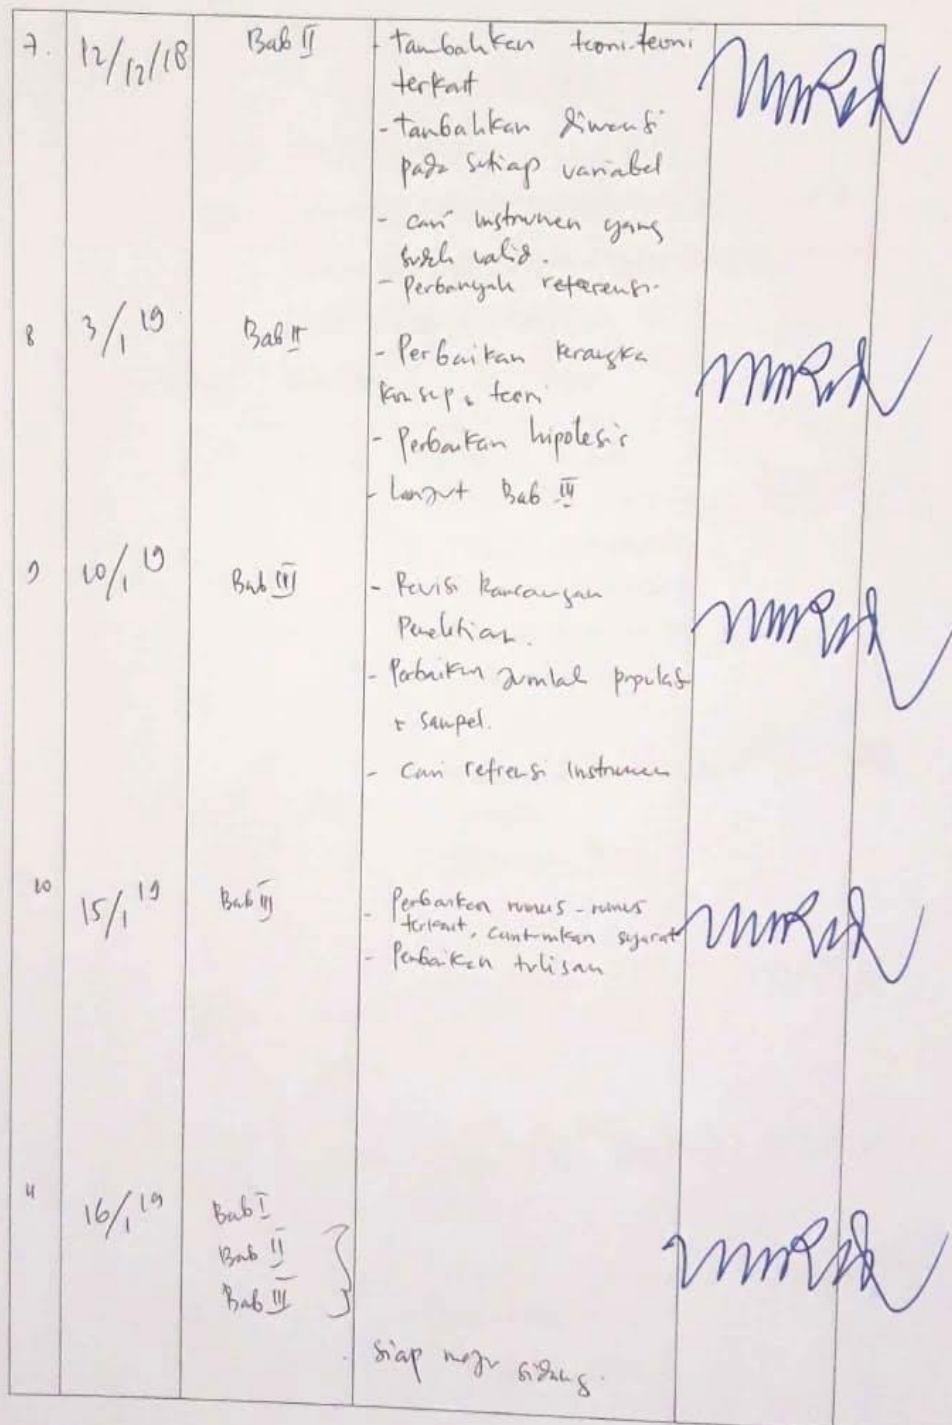 7. 12/12/18 Bab II - tambahkan teori-teori
terkait
- tambahkan dimensi
pada setiap variabel
- cari instrumen yang
sudah valid.
- Perbanyak referensi.
8 3/1 19 Bab II - Perbaikan kerangka
konsep & teori
- Perbaikan hipotesis
- Lanjut Bab III
9 10/1 19 Bab III - Revisi Rancangan
Penelitian.
- Perbaikan Jumlah populasi
+ Sampel.
- Cari refrensi Instrumen
10 15/1 19 Bab III - Perbaikan rumus-rumus
terkait, cantumkan syarat
- Perbaikan tulisan
11 16/1 19 Bab I
Bab II
Bab III
siap maju sidang.